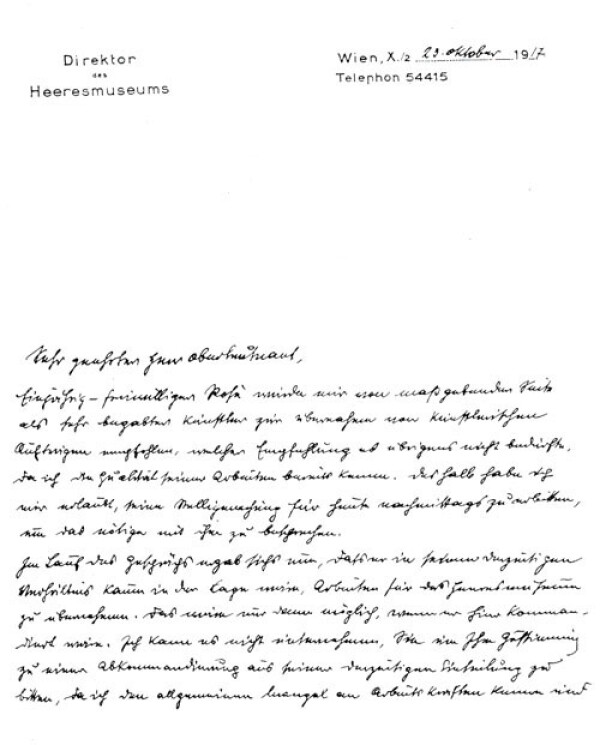 Direktor
des
Heeresmuseums
Wien, X./2 29. Oktober 1917
Telephon 54415
Sehr geehrter Herr Oberleutnant,
Einjährig-freiwilliger Rosé wurde mir von maßgebender Seite
als sehr begabter Künstler zur Übernahme von künstlerischen
Aufträgen empfohlen, welcher Empfehlung es übrigens nicht bedürfte,
da ich die Qualität seiner Arbeiten bereits kenne. Deshalb habe ich
mir erlaubt, seine für heute nachmittags zu erbitten,
um das nötige mit ihm zu besprechen.
Im Laufe des Gesprächs ergab sich nun, dass er in seinem derzeitigen
Verhältnis kaum in der Lage wäre, Arbeiten für das Heeresmuseum
zu übernehmen. Das wäre nur dann möglich, wenn er hier komman-
diert wäre. Ich kann es nicht unternehmen, Sie um Ihre Zustimmung
zu einer Abkommandierung aus seiner derzeitigen Einteilung zu
bitten, da ich den allgemeinen Mangel an Arbeitskräften kenne und